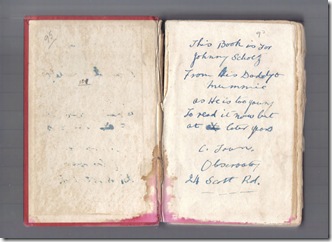 This Book is for
Johnny Scholtz
From his Daddy &
Mummie
as He is to young
To read it now but
at later years
C. Town.
Observatory
24 Scott Rd.